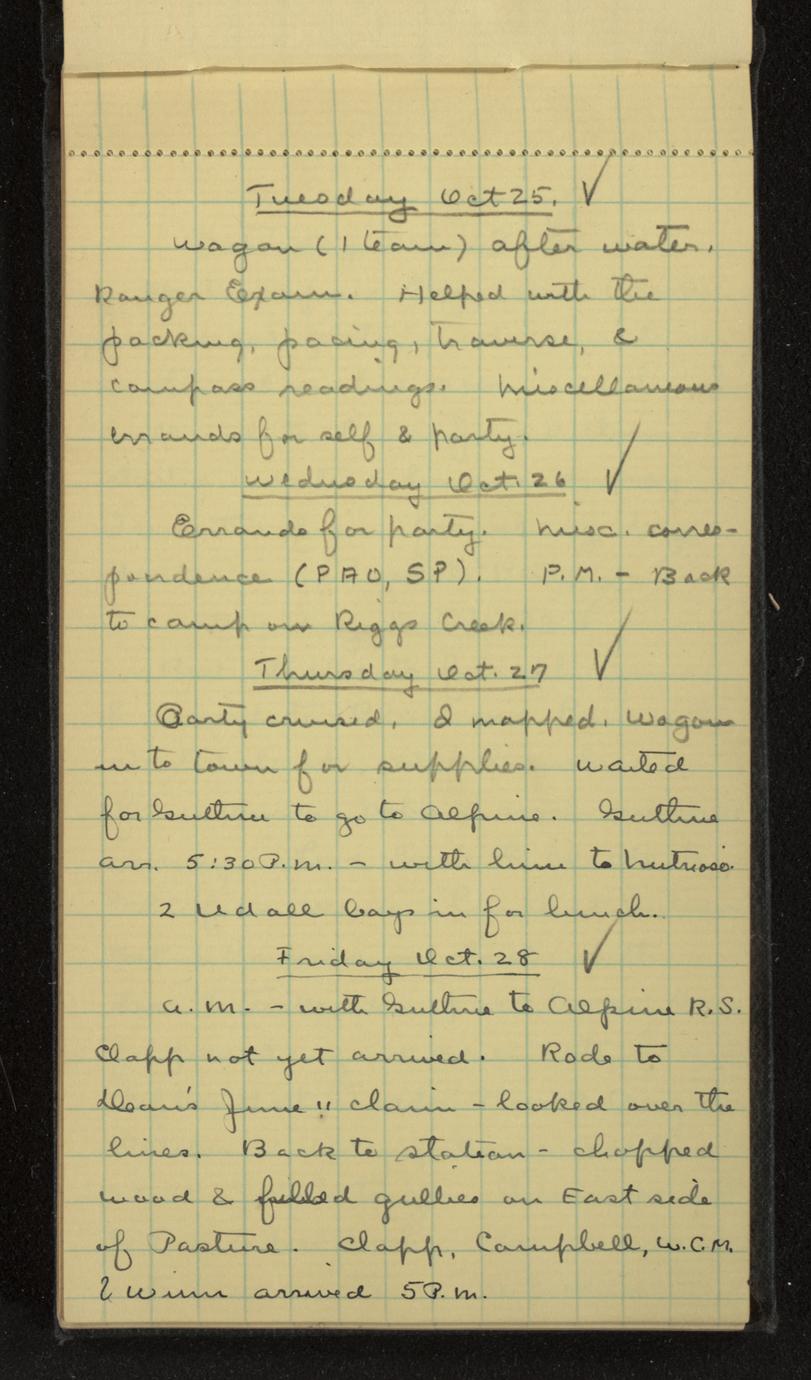 Tuesday Oct 25. ✓
Wagon (1 team) after water.
Ranger Exam. Helped with the
packing, pacing, traverse, &
compass readings. Miscellaneous
errands for self & party.
Wednesday Oct. 26 ✓
Errands for party. Misc. corres-
pondence (PAO, SP). P.M. - Back
to camp on Riggs Creek.
Thursday Oct. 27 ✓
Party cruised, I mapped. Wagon
in to town for supplies. Waited
for Guthrie to go to Alpine. Guthrie
arr. 5:30 P.m. - with him to Nutrioso.
2 Udall boys in for lunch.
Friday Oct. 28 ✓
a.m. - with Guthrie to Alpine R.S.
Clapp not yet arrived. Rode to
June 11 claim - looked over the
lines. Back to station - chopped
wood & filled gullies on East side
of Pasture. Clapp, Campbell, W.C.M.
& Winn arrived 5 P.m.